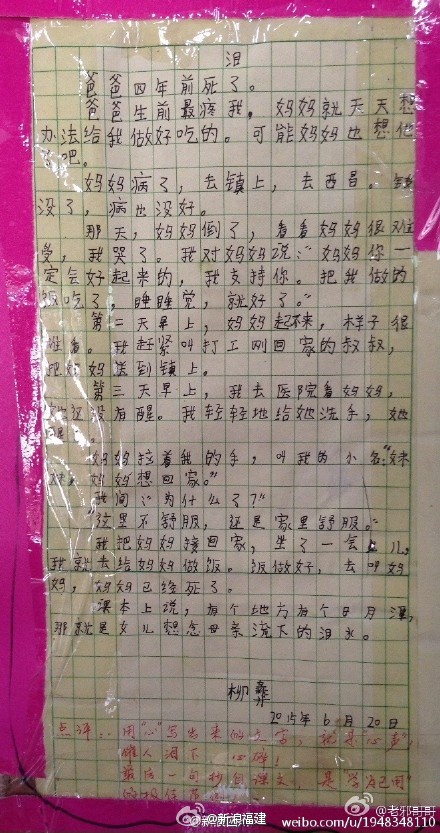 泪
爸爸四年前死了。
爸爸生前最疼我,妈妈就天天想
办法给我做好吃的。可能妈妈也想他
了吧。
妈妈病了,去镇上,去西昌,钱
没了,病也没好。
那天,妈妈倒了,看看妈妈很难
受,我哭了。我对妈妈说:“妈妈你一
定会好起来的,我支持你。把我做的
饭吃了,睡睡觉,就好了。”
第二天早上,妈妈起不来,样子很
难看。我赶紧叫打工刚回家的叔叔,
把妈妈送到镇上。
第三天早上,我去医院看妈妈,
她还没有醒。我轻轻地给她洗手,她
醒了。
妈妈拉着我的手,叫我的小名:“妹
妹,妈妈想回家。”
我问:“为什么了?”
“这里不舒服,还是家里舒服。”
我把妈妈接回家,坐了一会儿,
我就去给妈妈做饭。饭做好,去叫妈
妈,妈妈已经死了。
课本上说,有个地方有个日月潭,
那就是女儿想念母亲流下的泪水。
柳彝
2015年6月20日
点评:用“心”写出来的文字,就是“心声”,
催人泪下 心碎!
最后一句抄自课文,是“学为己用”
@新浪福建
@老邪哥哥
weibo.com/u/1948348110